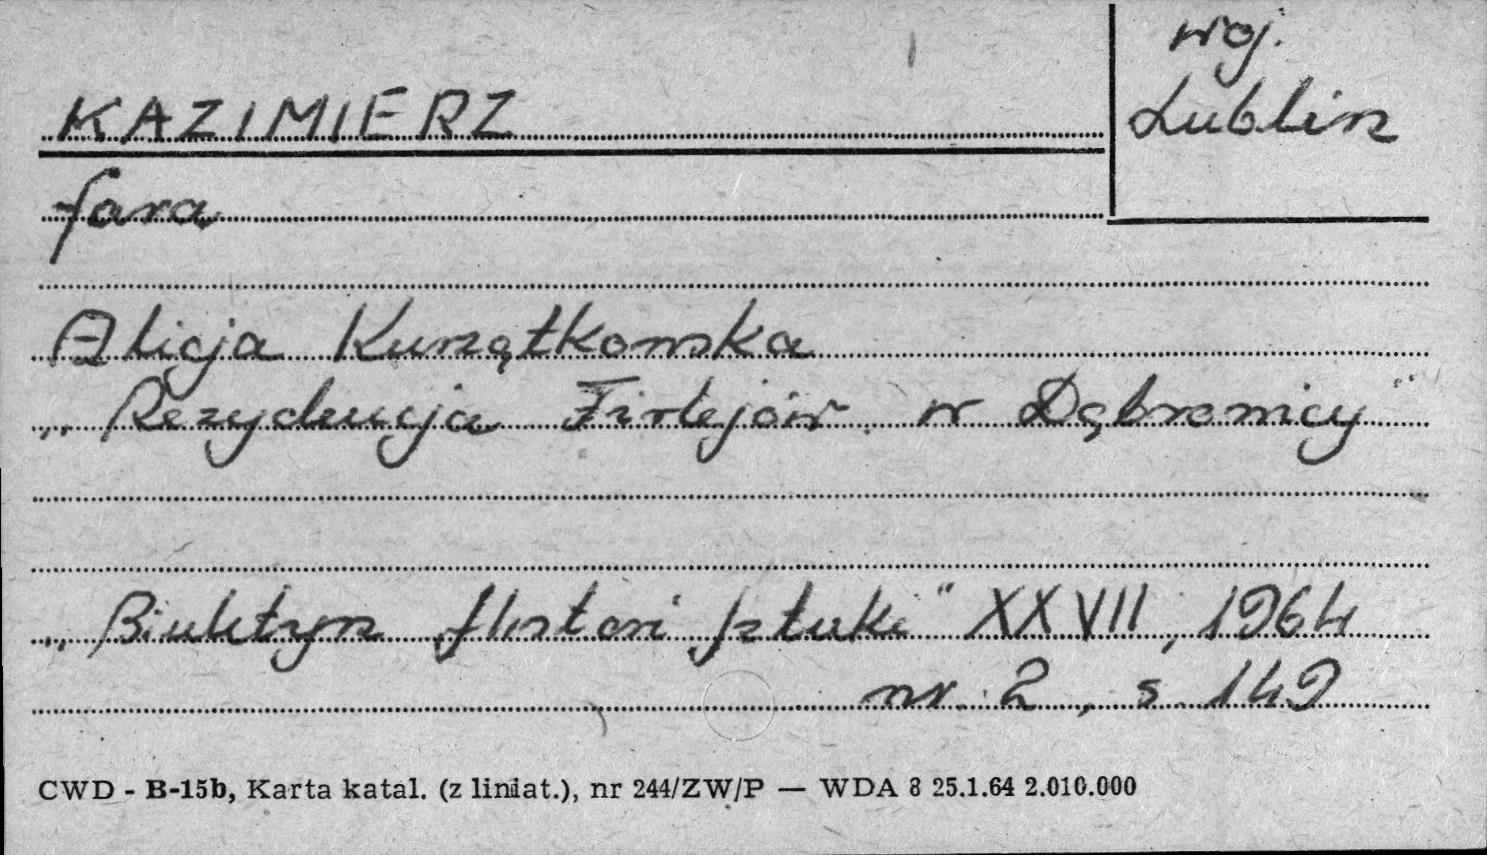 woj.
Lublin
KAZIMIERZ
fara
Alicja Kurzątkowska
„Rezydencja Firlejów w Dąbrowicy"
„Biuletyn Histori Sztuki" XXVII, 1964
nr. 2, s. 149
CWD - B-15b, Karta katal. (z liniat.), nr 244/ZW/P — WDA 8 25.1.64 2.010.000